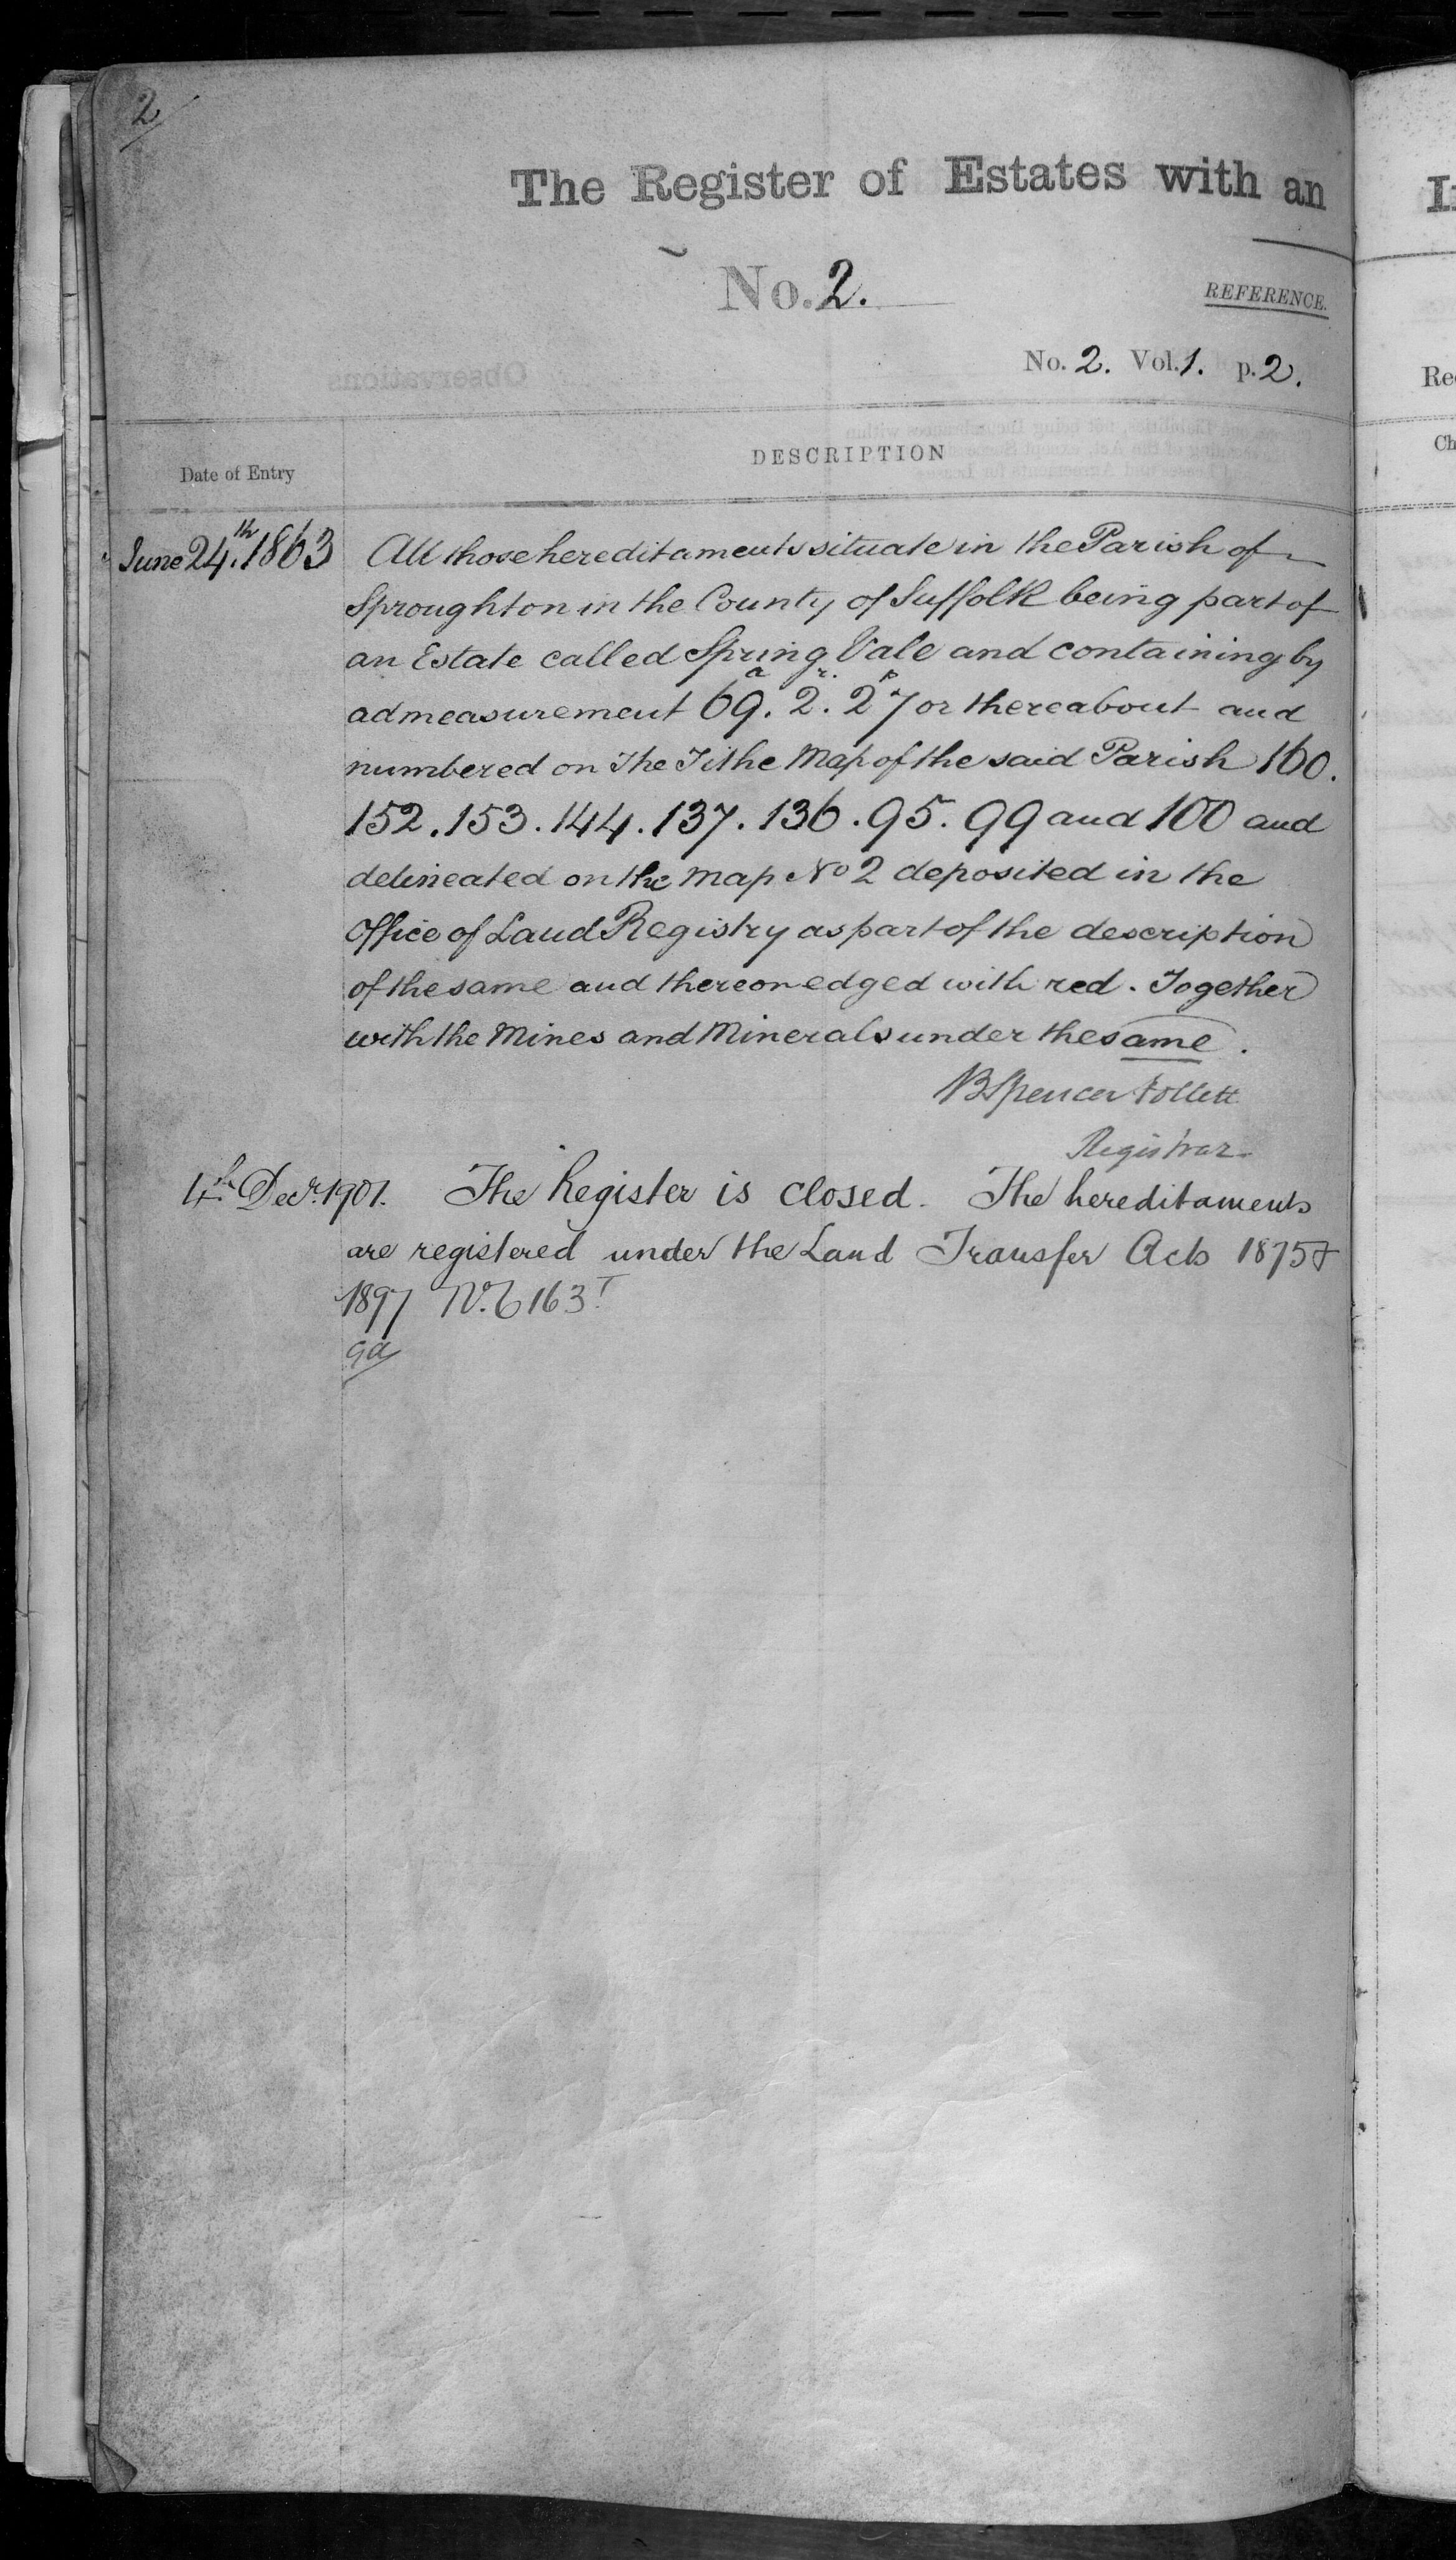 2
The Register of Estates with an
No. 2.
REFERENCE.
No. 2. Vol. 1. p. 2.
Observations
Date of Entry
DESCRIPTION
June 24th. 1863 All those hereditaments situate in the Parish of
Sproughton in the County of Suffolk being part of
an Estate called Spring Vale and containing by
a r. p
admeasurement 69. 2. 27 or thereabout and
numbered on The Tithe Map of the said Parish 160.
152. 153. 144. 137. 136. 95. 99 and 100 and
delineated on the Map No 2 deposited in the
Office of Land Registry as part of the description
of the same and thereon edged with red. Together
with the Mines and Minerals under the same.
B Spencer Follett
Registrar
4th Decr. 1901. The Register is closed. The hereditaments
are registered under the Land Transfer Acts 1875 &
1897 No. 6163